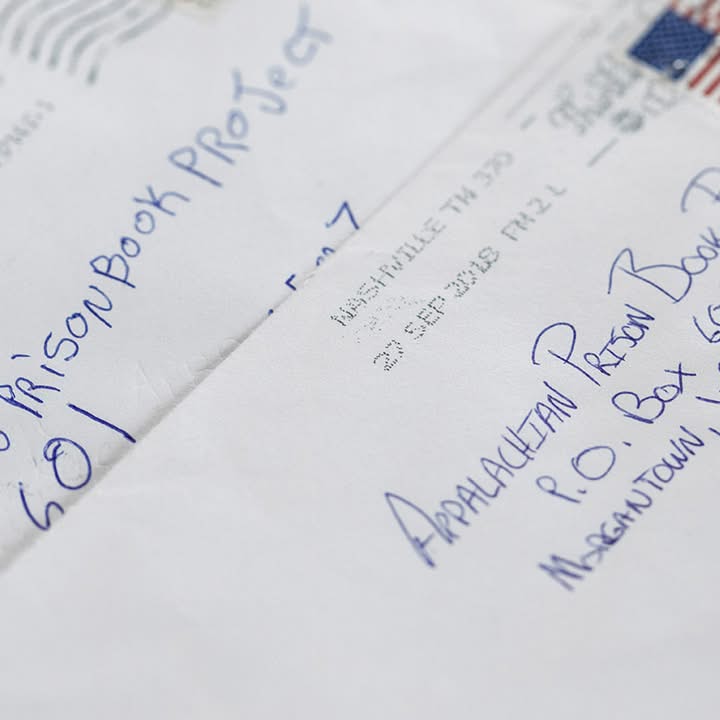 PRISON BOOK PROJECT
601
NASHVILLE TN 370
27 SEP 2018 PM 2 L
APPALACHIAN PRISON BOOK
P.O. BOX
MORGANTOWN,